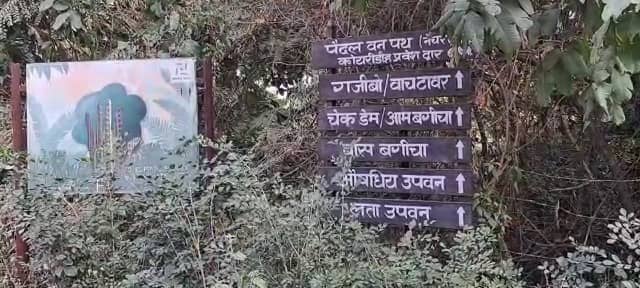 पैदल वन पथ (नेचर
कोयारीडोह प्रवेश द्वार
गजीबो/वाचटावर ↑
चेक डेम/आमबगीचा ↑
बांस बगीचा ↑
औषधिय उपवन ↑
लता उपवन ↑